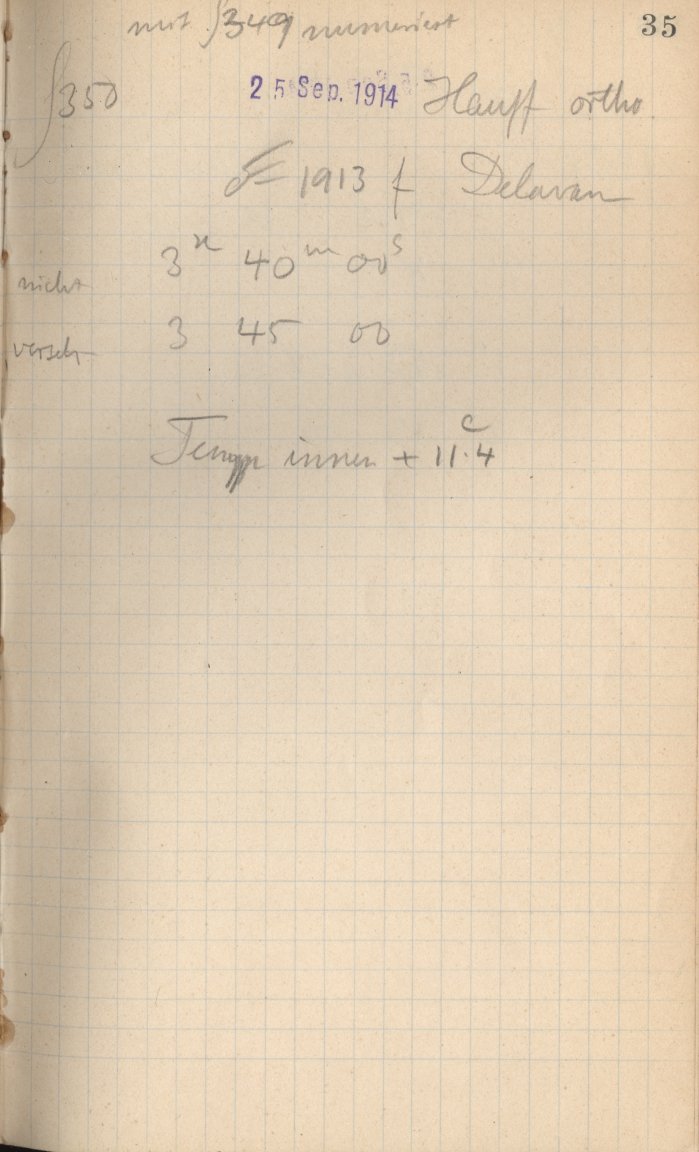 35
mit ∫349 numeriert
∫350 25 Sep. 1914 Hauff ortho
☄ 1913 f Delavan
3ʰ 40ᵐ 00ˢ
nicht
3 45 00
versch
Temp innen + 11.4 C